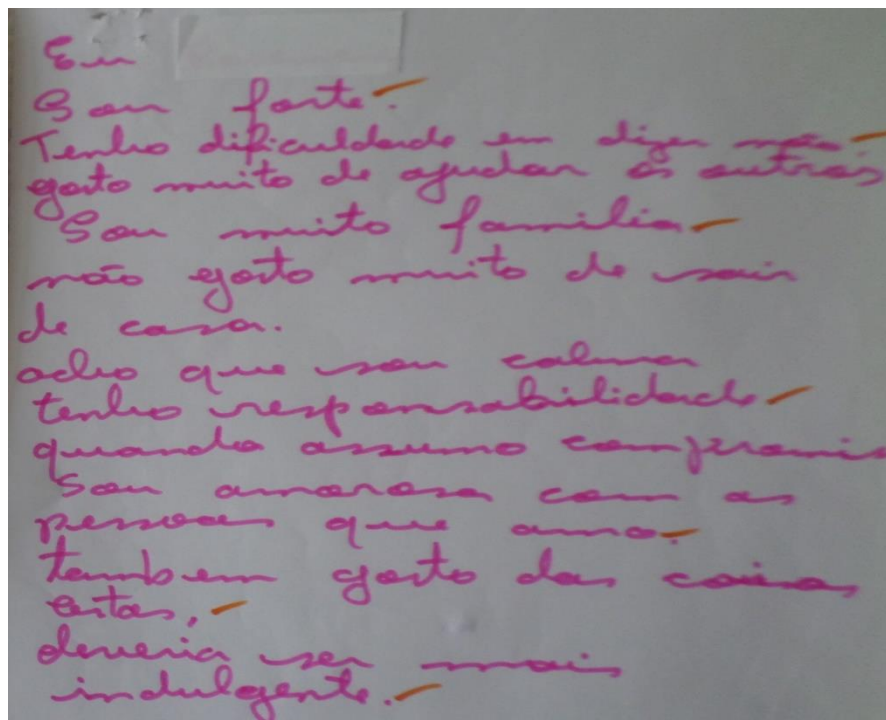 Eu
Sou forte.
Tenho dificuldade em dizer não
gosto muito de ajudar os outros
Sou muito familia
não gosto muito de sair
de casa.
acho que sou calma
tenho responsabilidade
quando assumo compromis
Sou amorosa com as
pessoas que amo.
tambem gosto das coisas
certas,
deveria ser mais
indulgente.